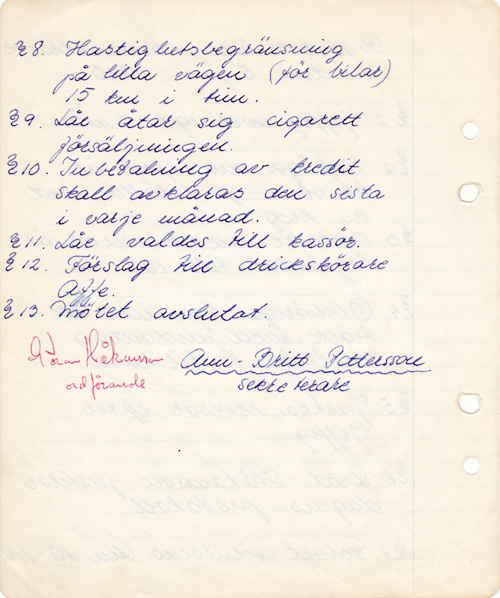 §8. Hastighetsbegränsning
på lilla vägen (för bilar)
15 km i tim.
§9. Lär åtar sig cigarett
försäljningen.
§10. Inbetalning av kredit
skall avklaras den sista
i varje månad.
§11. Lär valdes till kassör.
§12. Förslag till drickskörare
Affe.
§13. Mötet avslutat.
Göran Håkansson
ordförande
Ann-Britt Pettersson
sekreterare